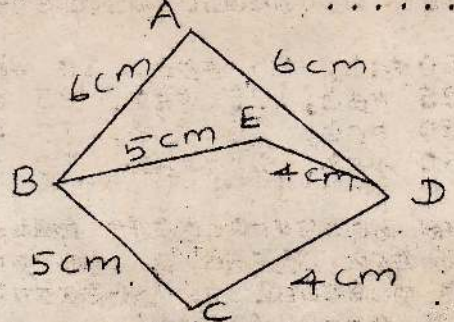 ........
A
6cm
6cm
E
5cm
4cm
B
D
5cm
4cm
C